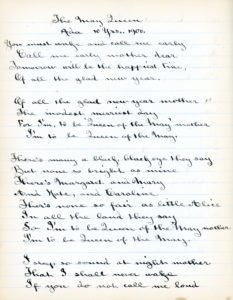 The May Queen
Ada 10 Yrs., 1900.
You must wake and call me early
Call me early mother dear
Tomorrow will be the happiest time,
Of all the glad new year.
Of all the glad new year mother
The modest merriest day
For I'm to be Queen of the May mother
I'm to be Queen of the May.
There's many a black, black eye they say
But none so bright as mine
There's Margaret and Mary
And Kate, and Caroline
There's none so fair as little Alice
In all the land they say
So I'm to be Queen of the May mother
I'm to be Queen of the May.
I sleep so sound at night mother
That I shall never wake
If you do not call me loud